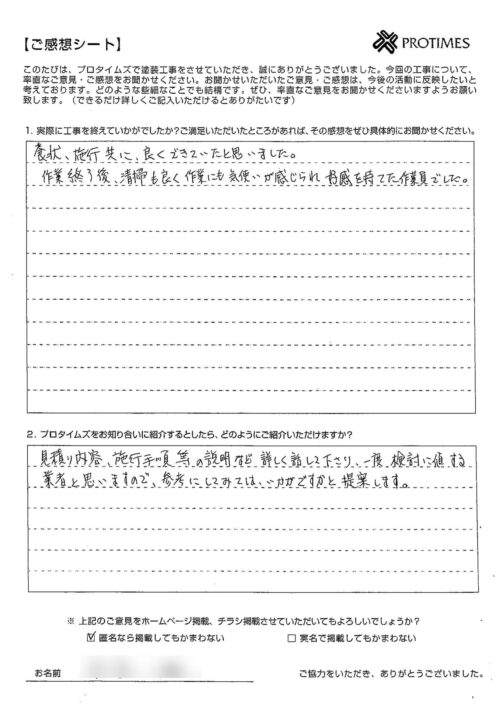 【ご感想シート】
PROTIMES
このたびは、プロタイムズで塗装工事をさせていただき、誠にありがとうございました。今回の工事について、
率直なご意見・ご感想をお聞かせください。お聞かせいただいたご意見・ご感想は、今後の活動に反映したいと
考えております。どのような些細なことでも結構です。ぜひ、率直なご意見をお聞かせくださいますようお願い
致します。（できるだけ詳しくご記入いただけるとありがたいです）
1. 実際に工事を終えていかがでしたか？ご満足いただいたところがあれば、その感想をぜひ具体的にお聞かせください。
、施行共に、良くできていたと思いました。
作業終了後、清掃も良く作業にも気使いが感じられ 好感を持てた作業員でした。
2. プロタイムズをお知り合いに紹介するとしたら、どのようにご紹介いただけますか？
見積り内容、施行手順等の説明など詳しく話して下さり、一度検討に値する
業者と思いますので、参考にしてみては、いかがですかと提案します。
※ 上記のご意見をホームページ掲載、チラシ掲載させていただいてもよろしいでしょうか？
☑ 匿名なら掲載してもかまわない □ 実名で掲載してもかまわない
お名前 ご協力をいただき、ありがとうございました。